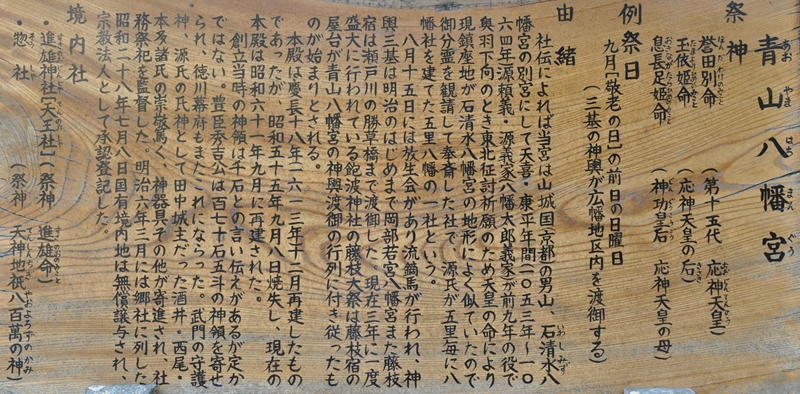 青山八幡宮
祭神
誉田別命 (第十五代 応神天皇)
玉依姫命 (応神天皇の后)
息長足姫命 (神功皇后 応神天皇の母)
例祭日
九月[敬老の日]の前日の日曜日
(三基の神輿が広幡地区内を渡御する)
由緒
社伝によれば当宮は山城国京都の男山、石清水八
幡宮の別宮にして天喜・康平年間一〇五三年〜一〇
六四年源頼義・源義家八幡太郎義家が前九年の役で
奥羽下向のとき東北征討祈願のため天皇の命により
現鎮座地が石清水八幡宮の地形によく似ていたので
御分霊を観請して奉斎した社で、源氏が五里毎に八
幡社を建てた五里八幡の一社という。
八月十五日には放生会があり流鏑馬が行われ、神
輿三基は明治のはじめまで岡部若宮八幡宮また藤枝
宿は瀬戸川の勝草橋まで渡御した。現在三年に一度
盛大に行われている飽波神社の藤枝大祭は藤枝宿の
屋台が青山八幡宮の神輿渡御の行列に付き従ったも
のが始まりとされる。
本殿は慶長十八年一六一三年十二月再建したもの
であったが、昭和五十五年九月八日焼失し、現在の
本殿は昭和六十一年九月に再建された。
創立当時の神領は千石との言い伝えがあるが定か
ではない。豊臣秀吉公は百七十石五斗の神領を寄せ
られ、徳川幕府もまたこれにならった。武門の守護
神、源氏の氏神として田中城主だった酒井・西尾・
本多諸氏の崇敬篤く、神器具その他が寄進され、社
務祭祀を監督した。明治六年三月には郷社に列した
昭和二十八年七月八日国有境内地は無償譲与され、
宗教法人として承認登記した。
境内社
・進雄神社[天王社] (祭神 進雄命)
・惣社 (祭神 天神地祇八百萬の神)